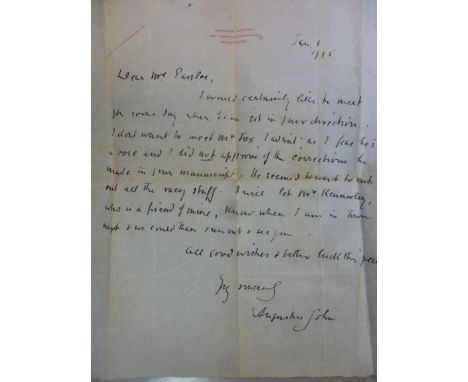 Jan. 9
1956
Dear Mrs
I would certainly like to meet
you some day when I am in your direction.
I dont want to meet Mr Fox I admit as I fear he's
a bore and I did not approve of the corrections he
made in your manuscript. He seemed to want to cut
out all the racy stuff. I will let Mr Kennerley,
who is a friend of mine, know when I am in Town
next & we could then run out & see you.
All good wishes & better luck this year
Yrs sincerely
Augustus John